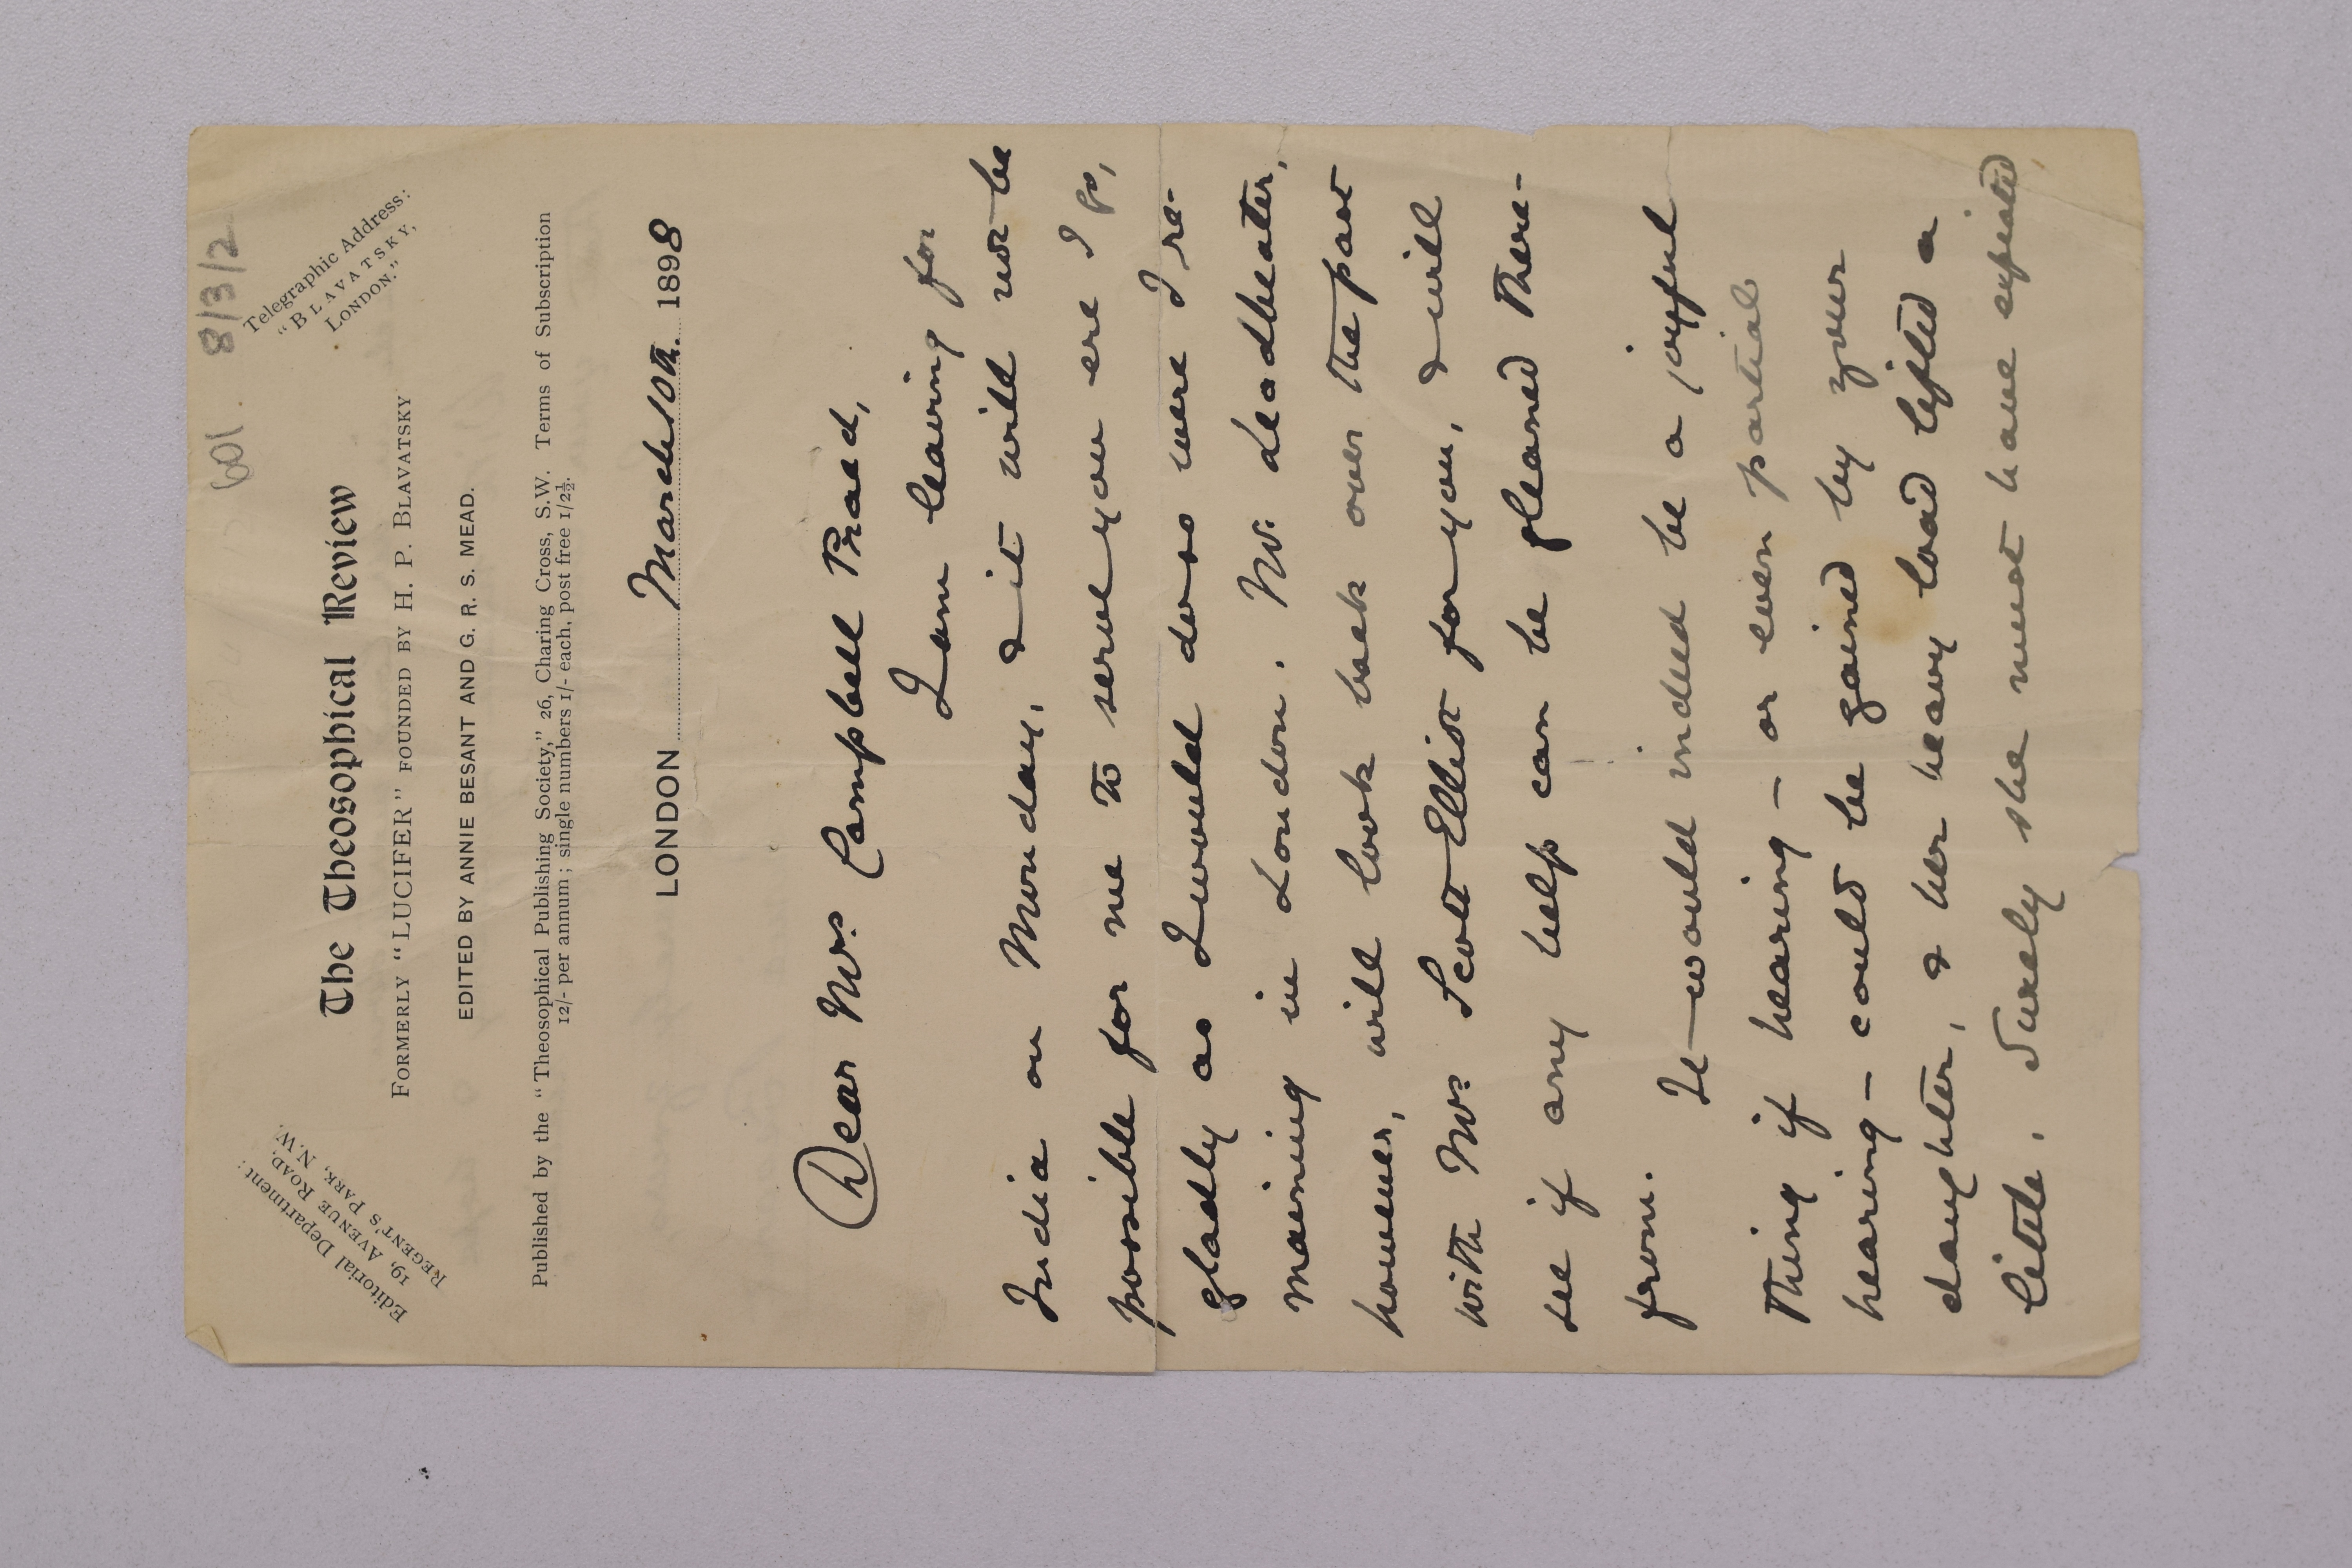 601. 8/3/2
Editorial Department:
19, AVENUE ROAD,
REGENT'S PARK, N.W.
Telegraphic Address:
"BLAVATSKY,
LONDON."
The Theosophical Review
FORMERLY "LUCIFER" FOUNDED BY H. P. BLAVATSKY
EDITED BY ANNIE BESANT AND G. R. S. MEAD.
Published by the "Theosophical Publishing Society," 26, Charing Cross, S.W. Terms of Subscription
12/- per annum; single numbers 1/- each, post free 1/2½.
LONDON March 10th. 1898
Dear Mrs Campbell Praed,
I am leaving for
India on Monday, & it will not be
possible for me to serve you ere I go,
gladly as I would do so were I re-
maining in London. Mr. Leadbeater,
however, will look back over the past
with Mrs Scott-Elliot for you, & will
see if any help can be gleaned there-
from. It would indeed be a joyful
thing if hearing – or even partial
hearing – could be gained by your
daughter, & her heavy load lifted a
little. Surely she must have expiated